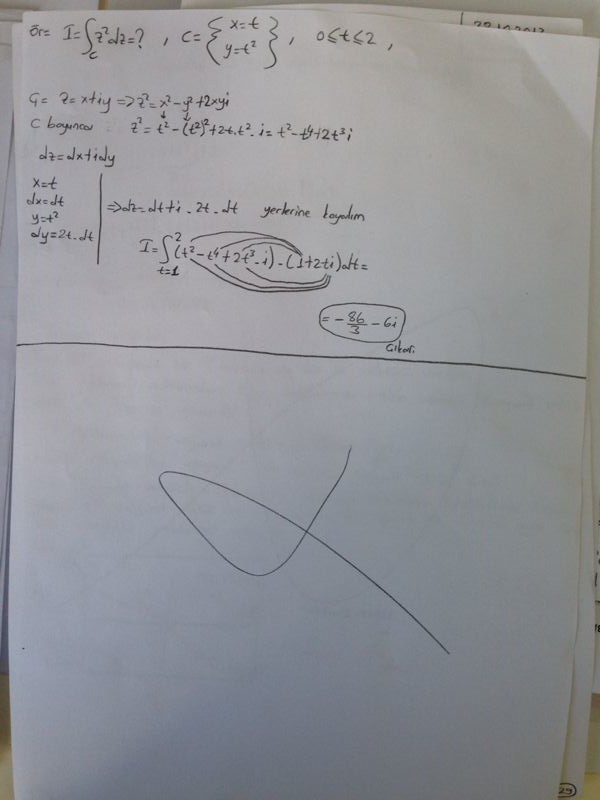 ör= I=∫_C z²dz=? , C={x=t y=t²} , 0≤t≤2 ,
Ç= z=x+iy ⇒ z²=x²-y²+2xyi
C boyunca z²=t²-(t²)²+2t.t².i=t²-t⁴+2t³i
dz=dx+idy
x=t
dx=dt
y=t²
dy=2t.dt
⇒dz=dt+i.2t.dt yerlerine koyalım
I=∫_{t=1}^{2}(t²-t⁴+2t³.i).(1+2ti)dt=
=-86/3-6i
çıkar
29